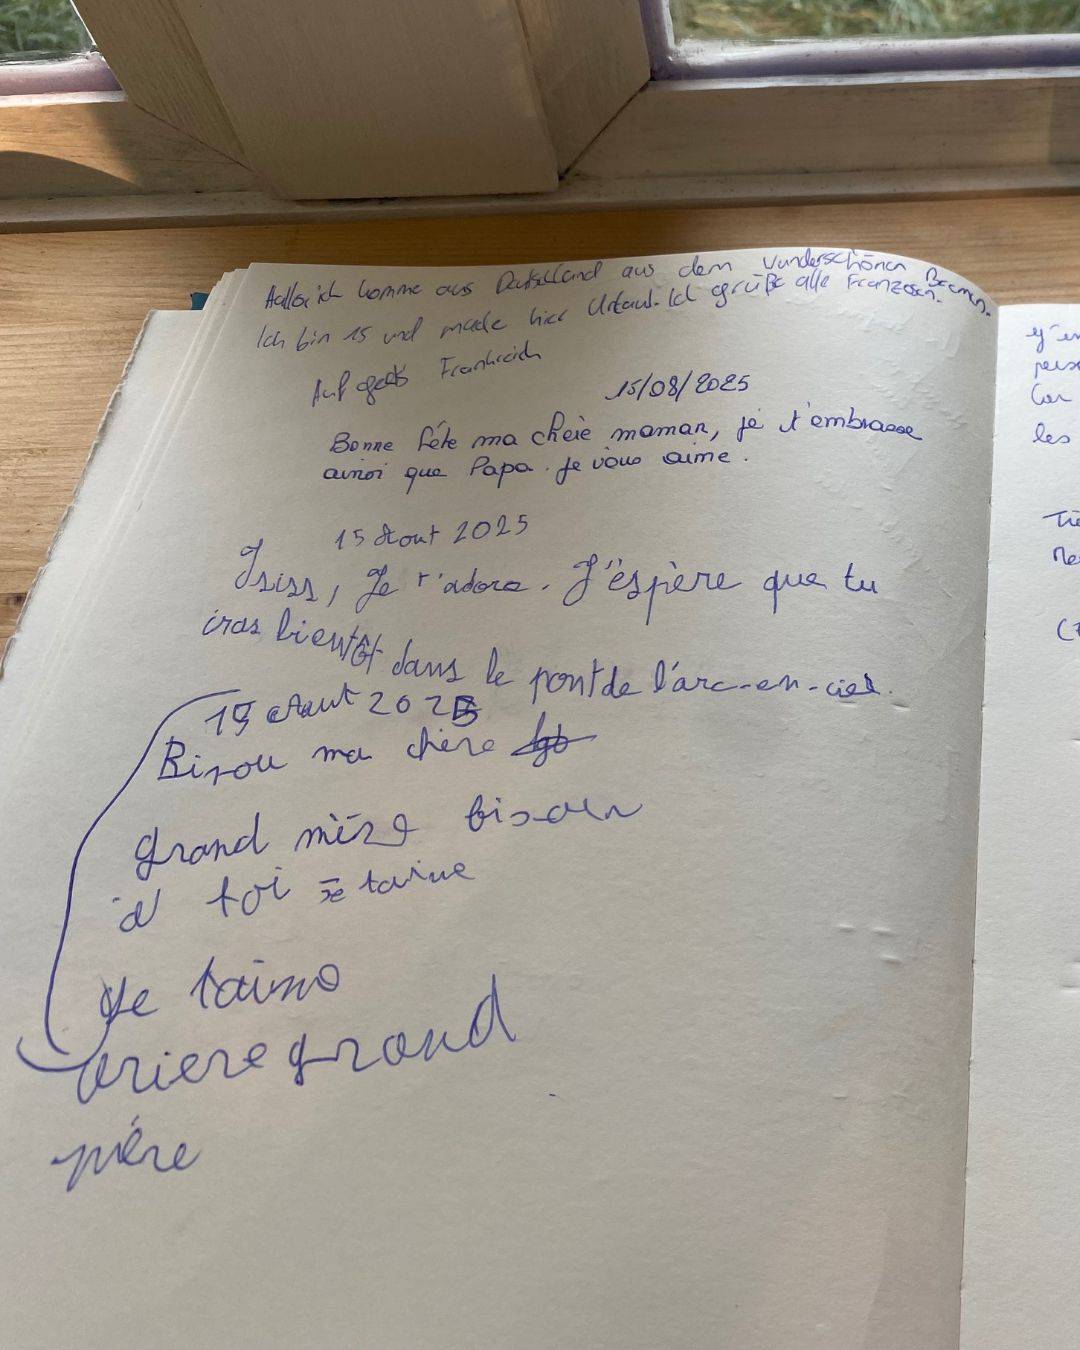 Hallo ich komme aus Deutschland aus dem wunderschönen Bremen.
Ich bin 15 und mache hier Urlaub. Ich grüße alle Franzosen.
Auf Frankreich
15/08/2025
Bonne fête ma chère maman, je t'embrasse
ainsi que Papa. Je vous aime.
15 Aout 2025
Isiss, Je t'adore. J'éspère que tu
iras bientôt dans le pont de l'arc-en-ciel.
15 Aout 2025
Bisou ma chère
grand mère bisou
a toi
Je taime
ariere grand
mère
y'en
Car
les